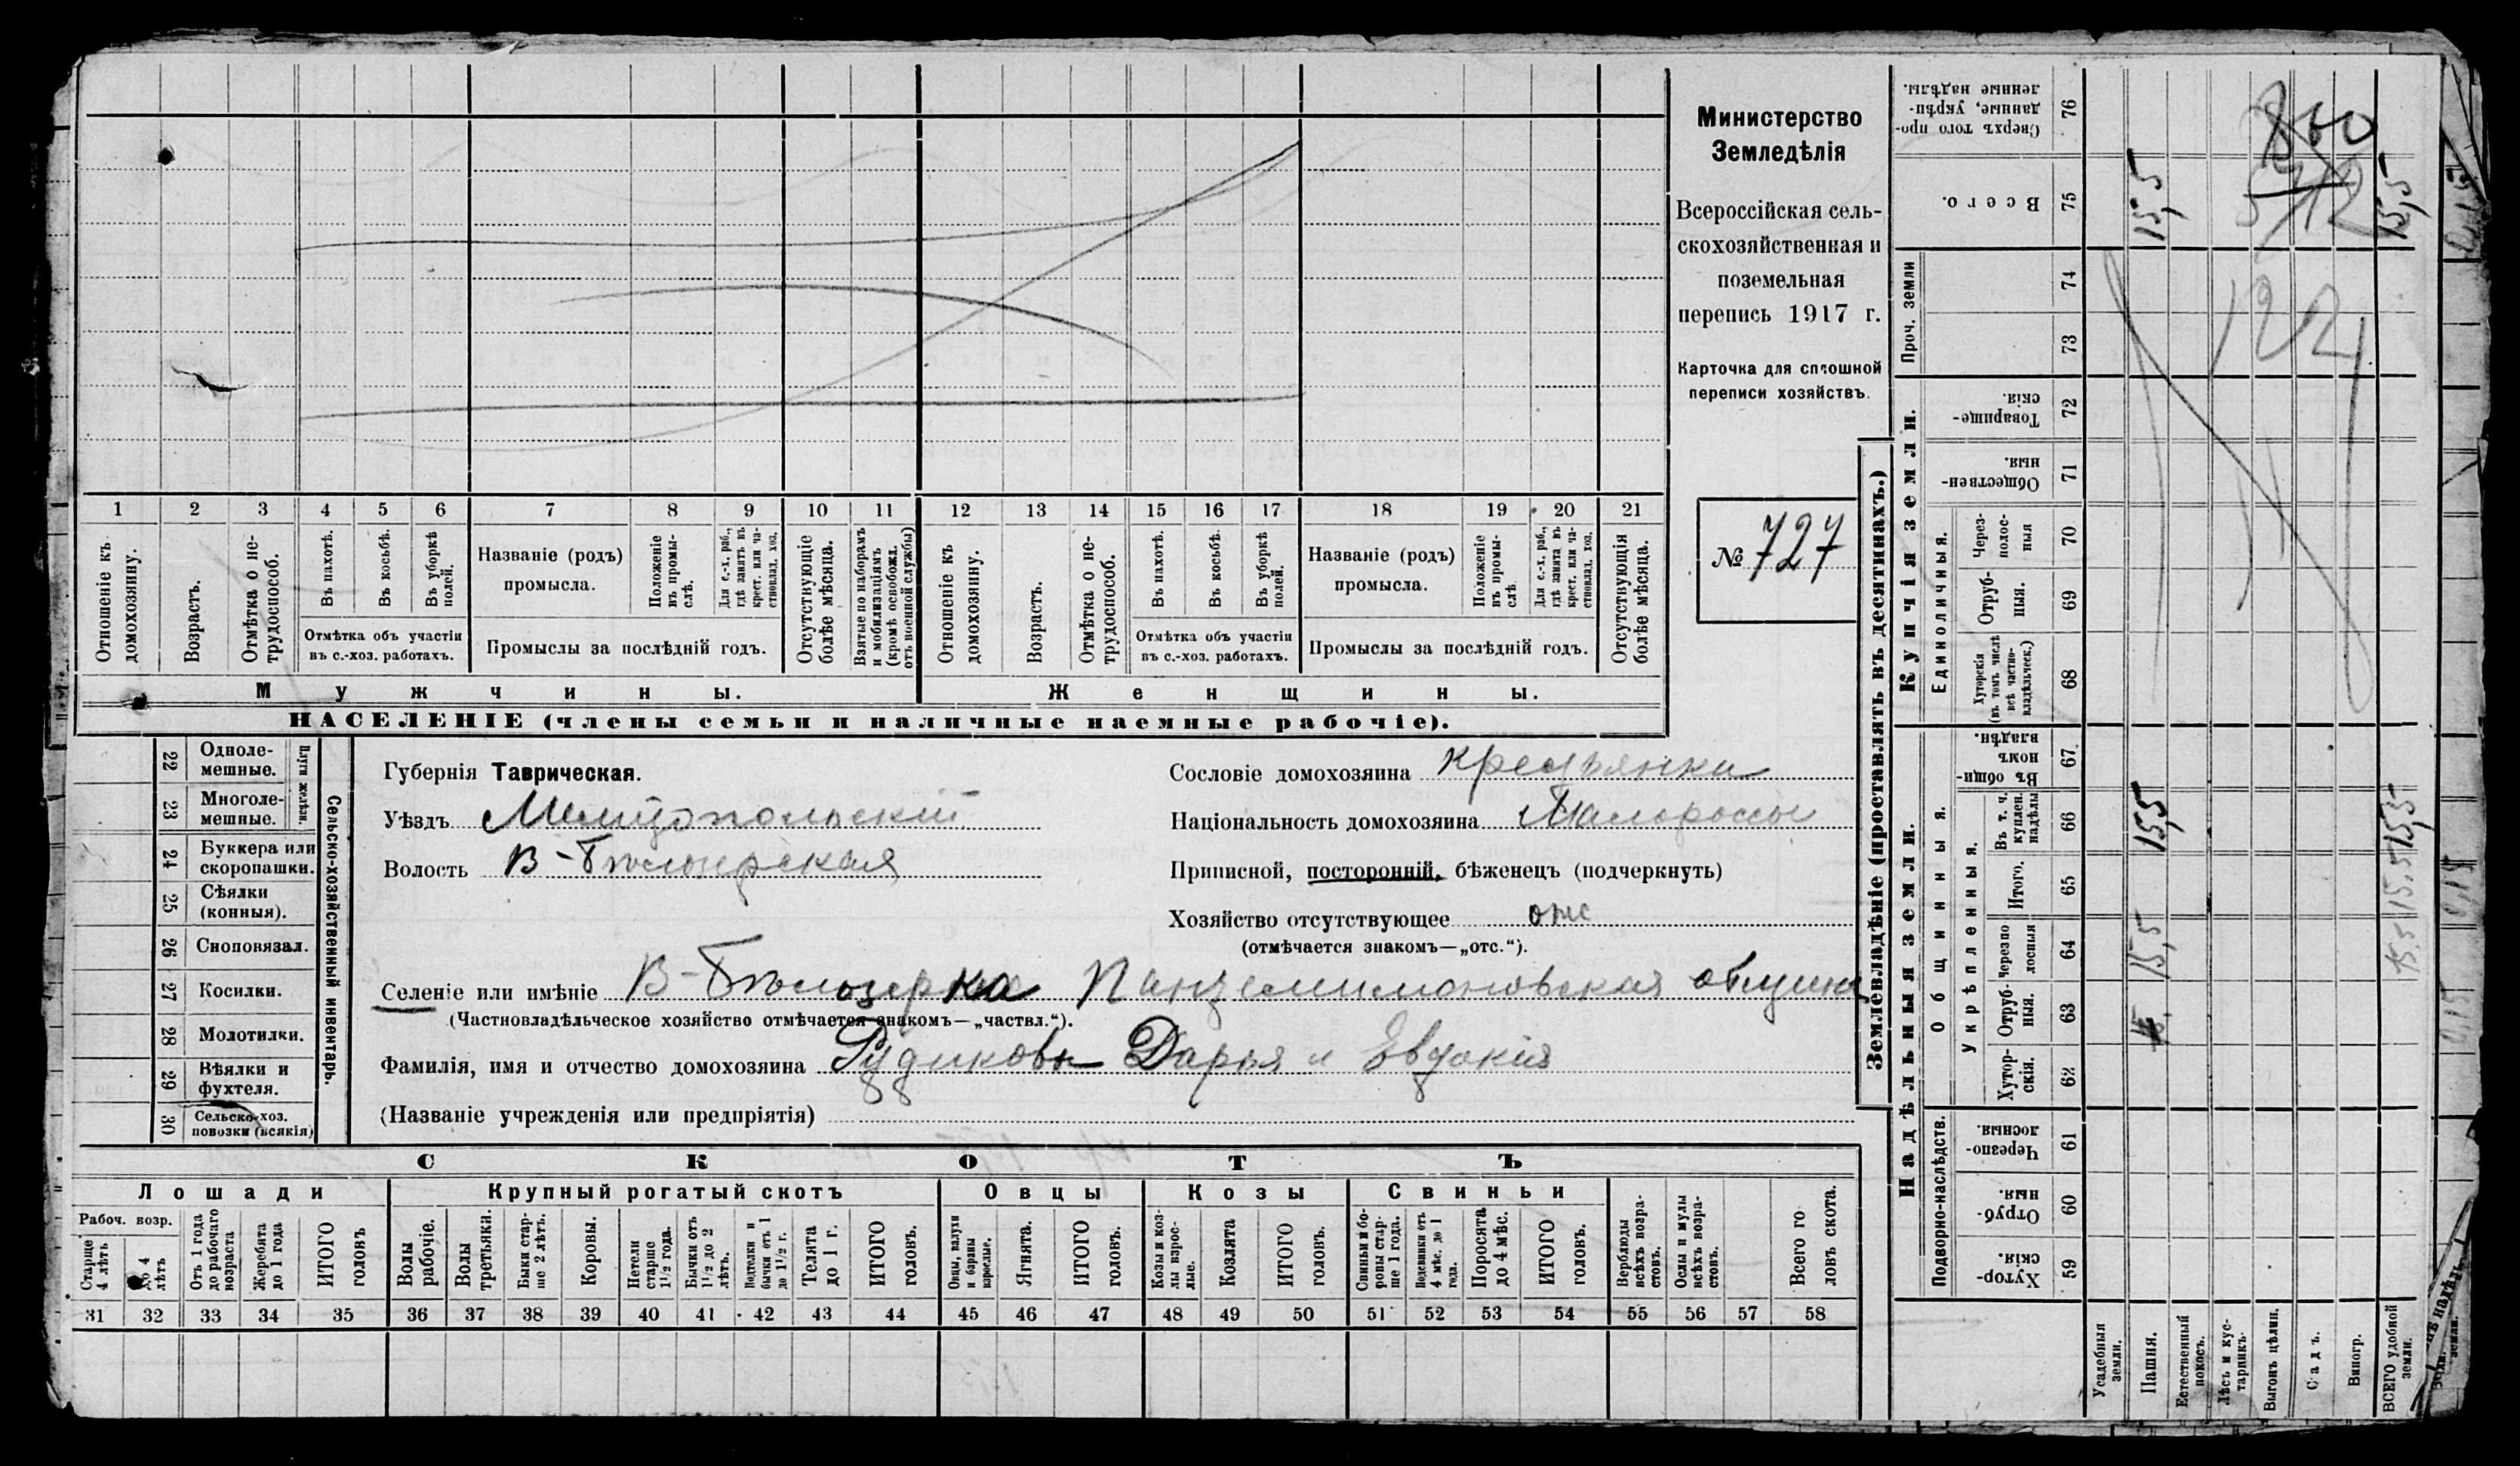 Министерство
Земледѣлія
Всероссійская сель-
скохозяйственная и
поземельная
перепись 1917 г.
Карточка для сплошной
переписи хозяйствъ.
№ 727
1 2 3 4 5 6 7 8 9 10 11 12 13 14 15 16 17 18 19 20 21
Отношеніе къ домохозяину.
Возрастъ.
Отмѣтка о не-трудоспособ.
Въ пахотѣ.
Въ косьбѣ.
Въ уборкѣ полей.
Отмѣтка объ участіи
въ с.-хоз. работахъ.
Названіе (родъ)
промысла.
Положеніе въ промы-слѣ.
Для с.-х. раб., гдѣ занятъ въ крест. или ча-стновлад. хоз.
Промыслы за послѣдній годъ.
Отсутствующіе болѣе мѣсяца.
Взятые по наборамъ и мобилизаціямъ (кромѣ освобожд. отъ военной службы)
Отношеніе къ домохозяину.
Возрастъ.
Отмѣтка о не-трудоспособ.
Въ пахотѣ.
Въ косьбѣ.
Въ уборкѣ полей.
Отмѣтка объ участіи
въ с.-хоз. работахъ.
Названіе (родъ)
промысла.
Положеніе въ промы-слѣ
Для с.-х. раб., гдѣ занята въ крест. или ча-стновлад. хоз.
Промыслы за послѣдній годъ.
Отсутствующія болѣе мѣсяца.
Мужчины.
Женщины.
НАСЕЛЕНІЕ (члены семьи и наличные наемные рабочіе).
22 Одноле-мешные.
23 Многоле-мешные.
Плуги желѣзн.
24 Буккера или скоропашки.
25 Сѣялки (конныя).
26 Сноповязал.
27 Косилки.
28 Молотилки.
29 Вѣялки и фухтеля.
30 Сельско-хоз. повозки (всякія)
Сельско-хозяйственный инвентарь.
Губернія Таврическая.
Уѣздъ Мелитопольскій
Волость В-Бѣлозерская
Сословіе домохозяина крестьянки
Національность домохозяина Малороссы
Приписной, посторонній, бѣженецъ (подчеркнуть)
Хозяйство отсутствующее отс
(отмѣчается знакомъ—„отс.“).
Селеніе или имѣніе В-Бѣлозерка Пантелимоновская община
(Частновладѣльческое хозяйство отмѣчается знакомъ—„частвл.“).
Фамилія, имя и отчество домохозяина Рудиковы Дарья и Евдокія
(Названіе учрежденія или предпріятія)
СКОТЪ
Лошади
Крупный рогатый скотъ
Овцы
Козы
Свиньи
Рабоч. возр.
Старше 4 лѣтъ
до 4 лѣтъ
Отъ 1 года до рабочаго возраста
Жеребята до 1 года
ИТОГО головъ
Волы рабочіе.
Волы третьяки.
Быки стар-ше 2 лѣтъ.
Коровы.
Нетели старше 1½ года.
Бычки отъ 1½ до 2 лѣтъ.
Подтелки и бычки отъ 1 до 1½ г.
Телята до 1 г.
ИТОГО головъ.
Овцы, валухи и бараны взрослые.
Ягнята.
ИТОГО головъ.
Козы и коз-лы взрос-лые.
Козлята
ИТОГО головъ.
Свиньи и бо-ровы стар-ше 1 года.
Подсвинки отъ 4 мѣс. до 1 года.
Поросята до 4 мѣс.
ИТОГО головъ.
Верблюды всѣхъ возра-стовъ.
Ослы и мулы всѣхъ возра-стовъ.
Всего го ловъ скота.
31 32 33 34 35 36 37 38 39 40 41 42 43 44 45 46 47 48 49 50 51 52 53 54 55 56 57 58
Землевладѣніе (проставлять въ десятинахъ.)
Купчія земли.
Надѣльныя земли.
Сверхъ того про-данные, укрѣп-ленные надѣлы. 76
Всего. 75
Проч. земли
74
73
Товарище-скія. 72
Обществен-ныя. 71
Единоличныя.
Через-полос-ныя 70
Отруб-ныя. 69
Хуторскія (въ томъ числѣ всѣ частно-владѣльческ.) 68
Общинныя.
Въ общи-номъ владѣн. 67
Укрѣпленныя.
Въ т. ч. куплен. надѣлы 66
Итого. 65
Черезпо лосныя 64
Отруб-ныя. 63
Хутор-скія. 62
Подворно-наслѣдств.
Черезпо-лосныя. 61
Отруб-ныя. 60
Хутор-скія. 59
Усадебныя земли.
Пашня.
Естественный покосъ.
Лѣсъ и кус-тарникъ.
Выгонъ цѣлин.
Садъ.
Виногр.
ВСЕГО удобной земли.
15,5
15,5
15,5
15,5
15,5
15.5
15.5
122